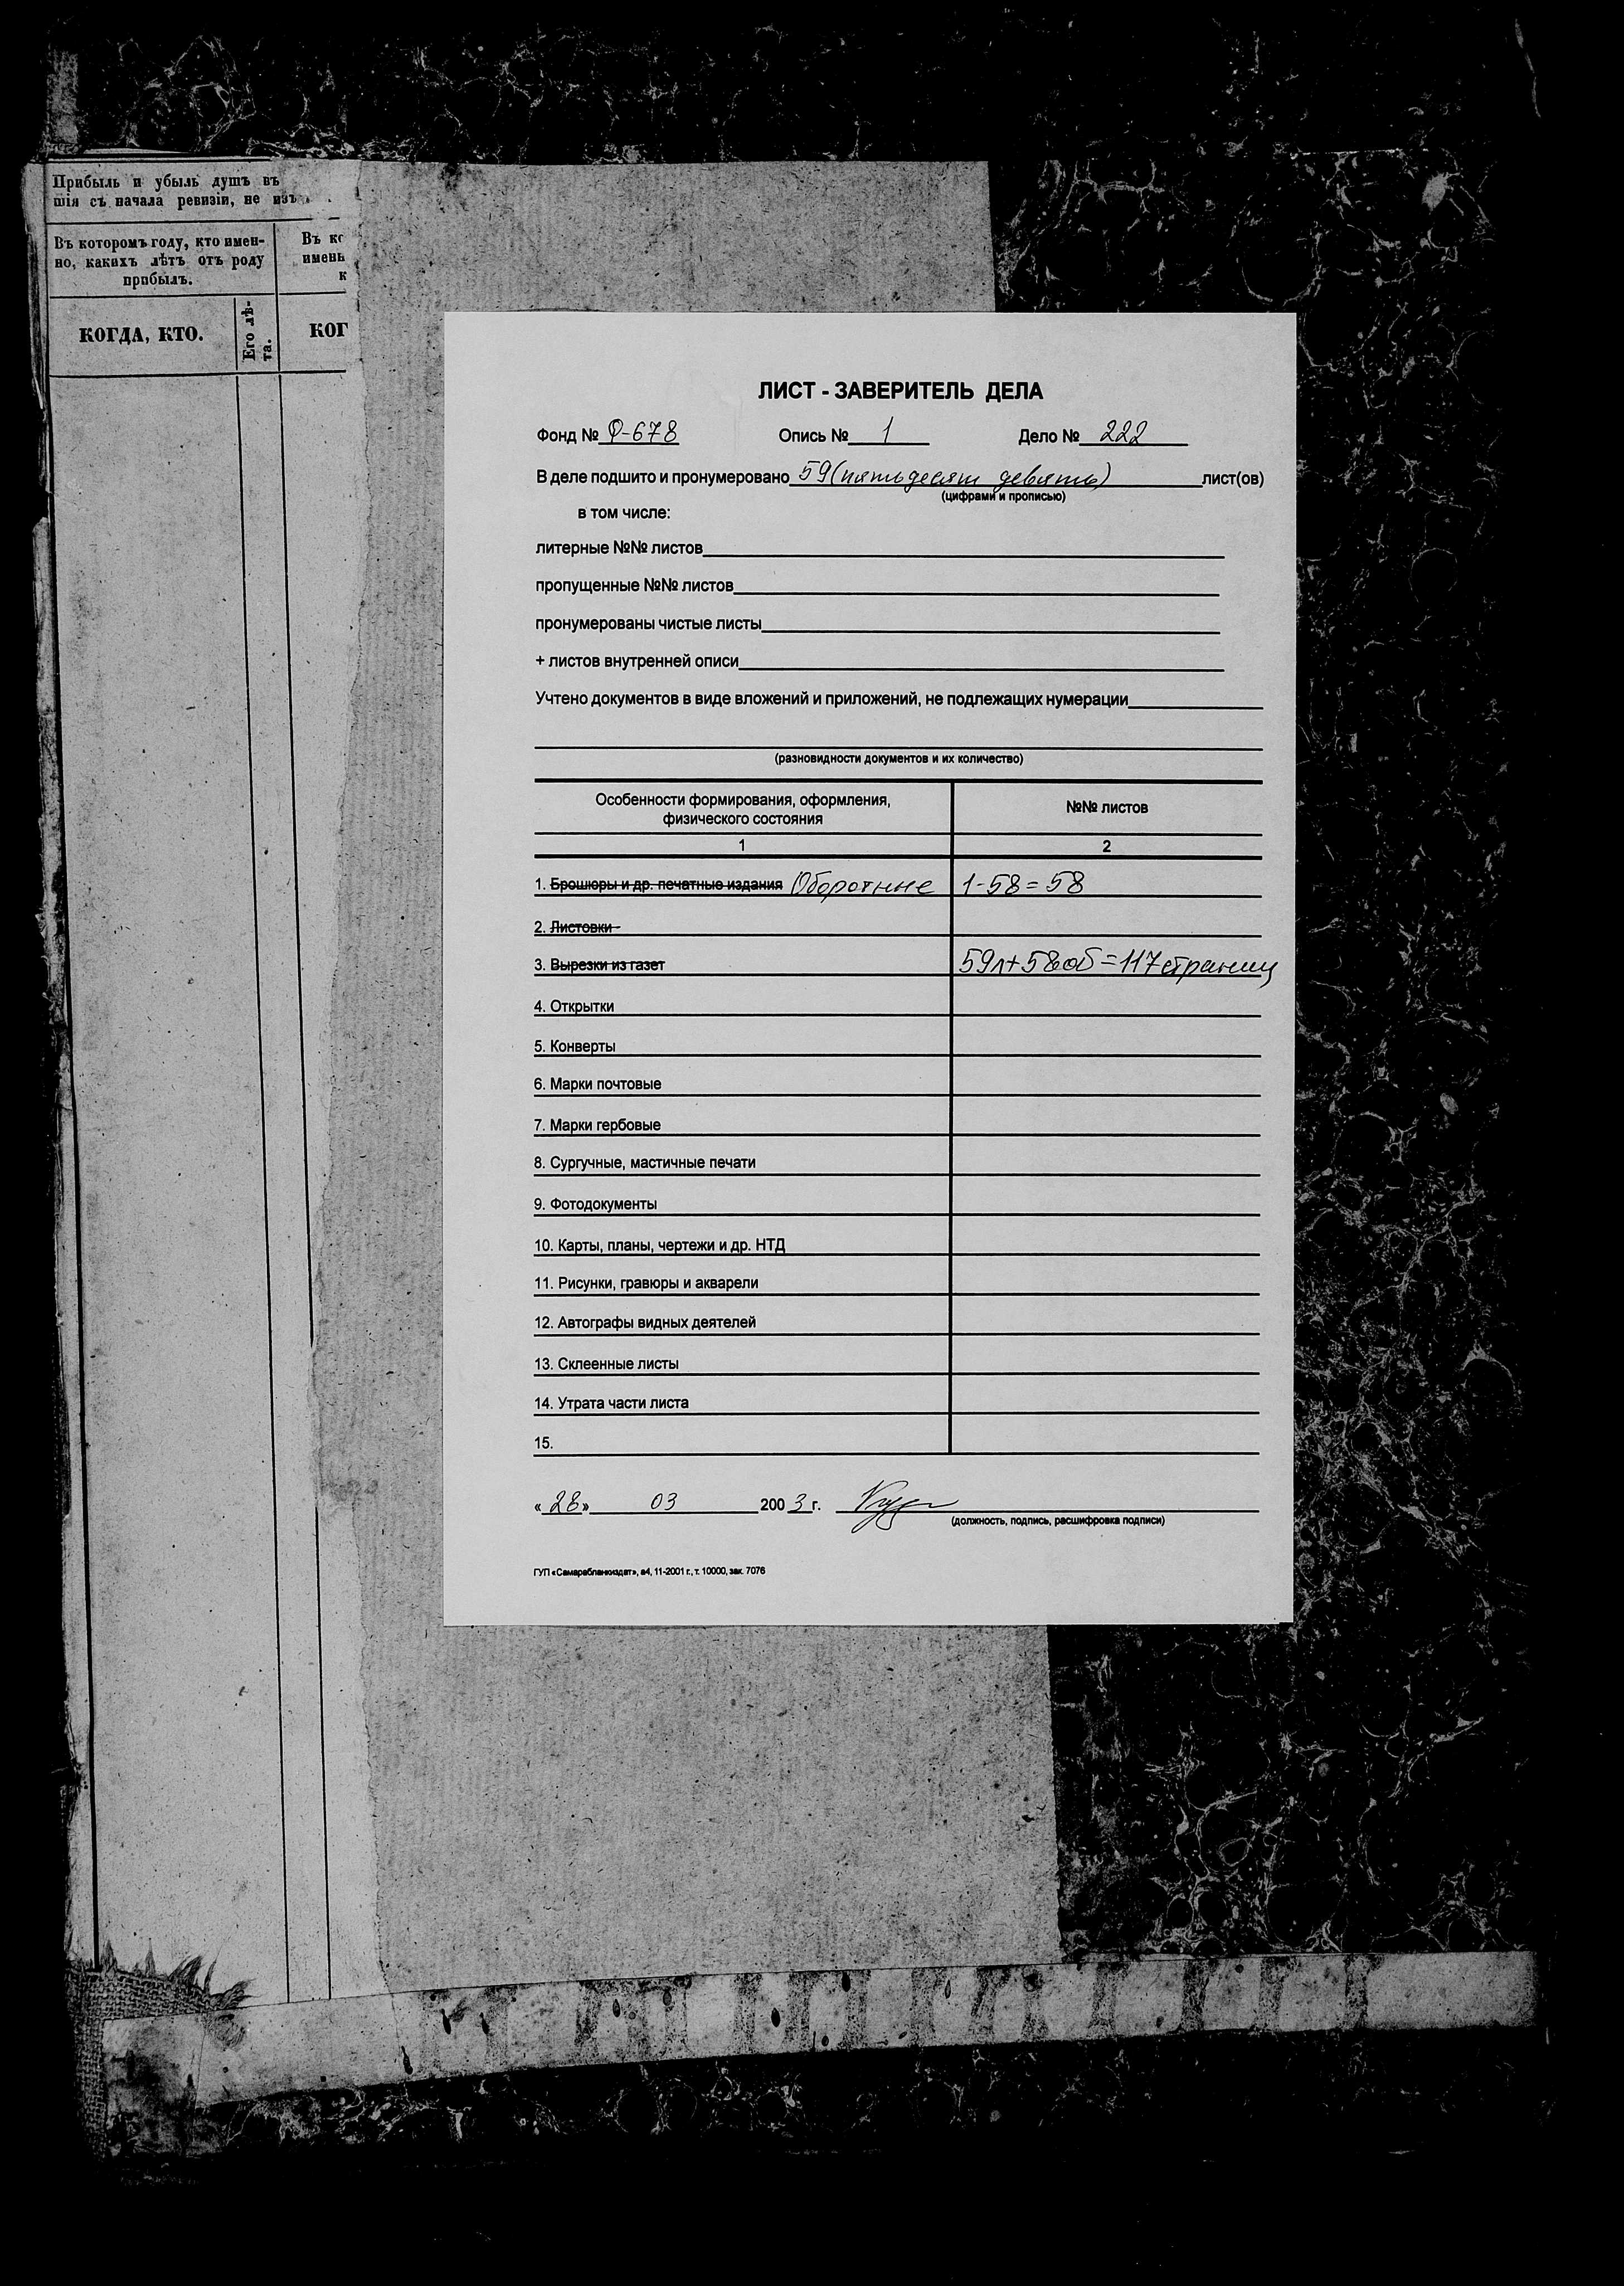 Прибыль и убыль душъ въ
шія съ начала ревизіи, не изъ
Въ которомъ году, кто имен-
но, какихъ лѣтъ отъ роду
прибылъ.
КОГДА, КТО.
Его лѣ-
та.
ЛИСТ - ЗАВЕРИТЕЛЬ ДЕЛА
Фонд № Ф-678 Опись № 1 Дело № 222
В деле подшито и пронумеровано 59 (пятьдесят девять) лист(ов)
(цифрами и прописью)
в том числе:
литерные №№ листов
пропущенные №№ листов
пронумерованы чистые листы
+ листов внутренней описи
Учтено документов в виде вложений и приложений, не подлежащих нумерации
(разновидности документов и их количество)
Особенности формирования, оформления,
физического состояния
№№ листов
1 2
1. Брошюры и др. печатные издания Оборотные 1-58 = 58
2. Листовки
3. Вырезки из газет 59л + 58об = 117 страниц
4. Открытки
5. Конверты
6. Марки почтовые
7. Марки гербовые
8. Сургучные, мастичные печати
9. Фотодокументы
10. Карты, планы, чертежи и др. НТД
11. Рисунки, гравюры и акварели
12. Автографы видных деятелей
13. Склеенные листы
14. Утрата части листа
15.
«28» 03 2003 г.
(должность, подпись, расшифровка подписи)
ГУП «Самарабланкиздат», а4, 11-2001 г., т. 10000, зак. 7076